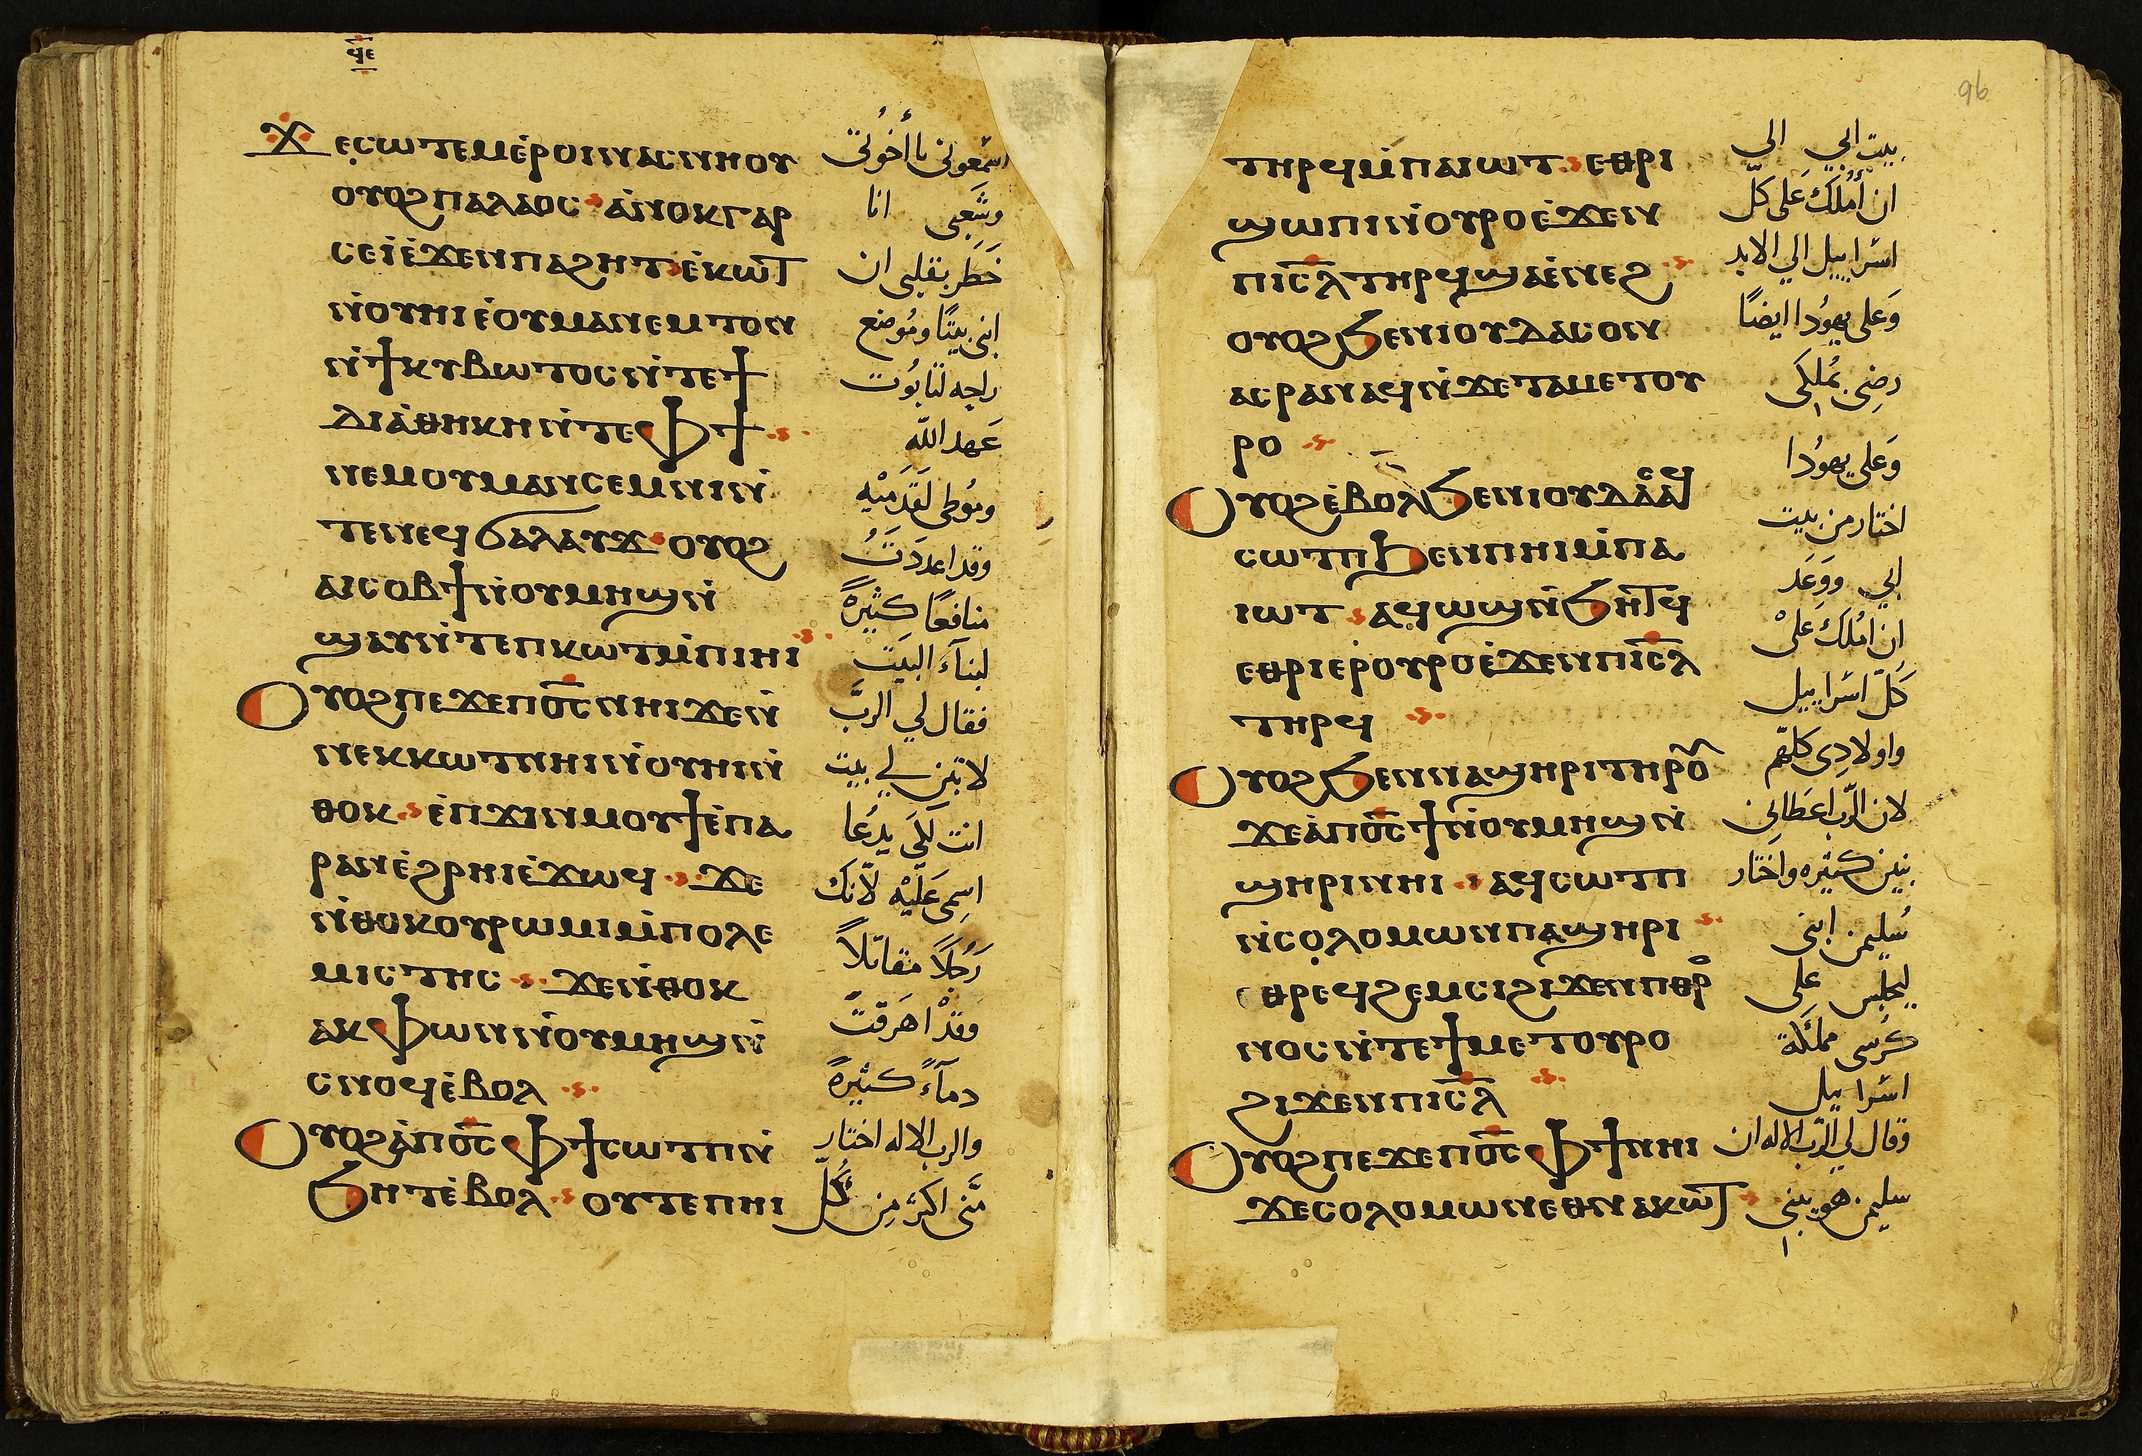 ϥⲉ
ϫⲉⲥⲱⲧⲉⲙ ⲉ̇ⲣⲟⲓ ⲛⲁⲥⲛⲏⲟⲩ
ⲟⲩⲟϩ ⲡⲁⲗⲁⲟⲥ ⲁ̇ⲛⲟⲕ ⲅⲁⲣ
ⲥⲉⲓ̇ ⲉ̇ϫⲉⲛ ⲡⲁϩⲏⲧ ⲉ̇ⲕⲱⲧ
ⲛ̇ⲟⲩⲏⲓ ⲉ̇ⲟⲩⲙⲁⲛⲉⲙⲧⲟⲛ
ⲛ̇ϯⲕⲩⲃⲱⲧⲟⲥ ⲛ̇ⲧⲉ ϯ
ⲇⲓⲁ̇ⲑⲏⲕⲏ ⲛ̇ⲧⲉ ⲫϯ
ⲛⲉⲙ ⲟⲩⲙⲁⲛⲥⲉⲙⲛⲓ ⲛ̇
ⲧⲉ ⲛⲉϥϭⲁⲗⲁⲩϫ ⲟⲩⲟϩ
ⲁⲓⲥⲟⲃϯ ⲛ̇ⲟⲩⲙⲏϣ ⲛ̇
ϣⲁⲩ ⲛ̇ⲧⲉ ⲡⲕⲱⲧ ⲙ̇ⲡⲓⲏⲓ
ⲟⲩⲟϩ ⲡⲉϫⲉ ⲡⲟ̅ⲥ̅ ⲛⲏⲓ ϫⲉ ⲛ̇
ⲛⲉⲕⲕⲱⲧ ⲛⲏⲓ ⲛ̇ⲟⲩⲏⲓ ⲛ̇
ⲑⲟⲕ ⲉ̇ⲡϫⲓⲛⲙⲟⲩϯ ⲉ̇ⲡⲁ
ⲣⲁⲛ ⲉ̇ϩⲣⲏⲓ ⲉ̇ϫⲱϥ ϫⲉ
ⲛ̇ⲑⲟⲕ ⲟⲩⲣⲱⲙⲓ ⲙ̇ⲡⲟⲗⲉ
ⲙⲓⲥⲧⲏⲥ ϫⲉ ⲛ̇ⲑⲟⲕ
ⲁⲕⲫⲱⲛ ⲛ̇ⲟⲩⲙⲏϣ ⲛ̇
ⲥⲛⲟϥ ⲉ̇ⲃⲟⲗ
ⲟⲩⲟϩ ⲁ̇ⲡⲟ̅ⲥ̅ ⲫϯ ⲥⲱⲧⲡ ⲛ̇
ϧⲏⲧ ⲉ̇ⲃⲟⲗ ⲟⲩⲧⲉ ⲡⲏⲓ
اسمعوني يا أخوتي
وشعبي انا
خَطَر بقلبي ان
ابنى بيتًا وموضع
راحه لتابوت
عَهد الله
وموطى لقدميْه
وقد اعددَتُ
منافعًا كثيرةً
لبناء البيت
فقال لي الربّ
لا تبن لي بيت
انت لكَي يدعَا
اسمى عَليْه لانك
رَجُلاً مقاتلاً
وقدْ اهَرقتَ
دمآءً كثيرةً
والرب الاله اختار
منّى اكثر مِن كُل
96
ⲧⲏⲣϥ ⲙ̇ⲡⲁⲓⲱⲧ ⲉⲑⲣⲓ
ϣⲱⲡⲓ ⲛ̇ⲟⲩⲣⲟ ⲉ̇ϫⲉⲛ
ⲡⲓⲥ̅ⲗ̅ ⲧⲏⲣϥ ϣⲁⲉ̇ⲛⲉϩ
ⲟⲩⲟϩ ϧⲉⲛ ⲓⲟⲩⲇⲁⲥ ⲟⲛ
ⲁⲥⲣⲁⲛⲁϥ ⲛ̇ϫⲉ ⲧⲁⲙⲉⲧⲟⲩ
ⲣⲟ
ⲟⲩⲟϩ ⲉ̇ⲃⲟⲗ ϧⲉⲛ ⲓⲟⲩⲇⲁⲥ ⲁϥ
ⲥⲱⲧⲡ ϧⲉⲛ ⲡⲏⲓ ⲙ̇ⲡⲁ
ⲓⲱⲧ ⲁϥⲱϣ ⲛ̇ϧⲏⲧϥ
ⲉⲑⲣⲓⲉⲣⲟⲩⲣⲟ ⲉ̇ϫⲉⲛ ⲡⲓⲥ̅ⲗ̅
ⲧⲏⲣϥ
ⲟⲩⲟϩ ϧⲉⲛ ⲛⲁϣⲏⲣⲓ ⲧⲏⲣⲟⲩ
ϫⲉ ⲁ̇ⲡⲟ̅ⲥ̅ ϯ ⲛ̇ⲟⲩⲙⲏϣ ⲛ̇
ϣⲏⲣⲓ ⲛⲏⲓ ⲁϥⲥⲱⲧⲡ
ⲛ̇ⲥⲟⲗⲟⲙⲱⲛ ⲡⲁϣⲏⲣⲓ
ⲉⲑⲣⲉϥϩⲉⲙⲥⲓ ϩⲓϫⲉⲛ ⲡⲓⲑⲣⲟ
ⲛⲟⲥ ⲛ̇ⲧⲉ ϯⲙⲉⲧⲟⲩⲣⲟ
ϩⲓϫⲉⲛ ⲡⲓⲥ̅ⲗ̅
ⲟⲩⲟϩ ⲡⲉϫⲉ ⲡⲟ̅ⲥ̅ ⲫϯ ⲛⲏⲓ
ϫⲉ ⲥⲟⲗⲟⲙⲱⲛ ⲉⲑⲛⲁⲕⲱⲧ
بيت ابي الي
ان أملك عَلى كلّ
اسراييل الي الابد
وَعَلى يهوُدا ايضًا
رضِى بمُلكى
وَعَلى يهوُدا
اختار من بيت
ابي ووَعَد
ان املك عَلىْ
كَلّ اسراييل
واولادِى كلهّم
لان الرّب اعطاني
بنين كثيره واختار
سُليمن ابنى
ليجلس عِلى
كرُسى مملكة
اسراييل
وقال لي الرّب الاله ان
سليمن هو يبني